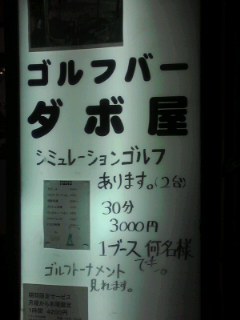 ゴルフバー
ダボ屋
シミュレーションゴルフ
あります。(2台)
30分
3000円
1ブース 何名様
でも。
ゴルフトーナメント
見れます。